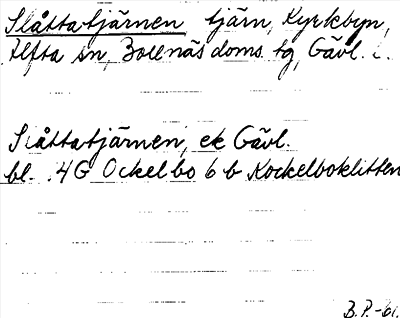 Slåttatjärnen tjärn, Kyrkbyn,
Alfta sn, Bollnäs doms tg, Gävl. l.
Slåttatjärnen, ek Gävl.
bl. 4G Ockelbo 6 b Kockelboklitten
B.P.-61.